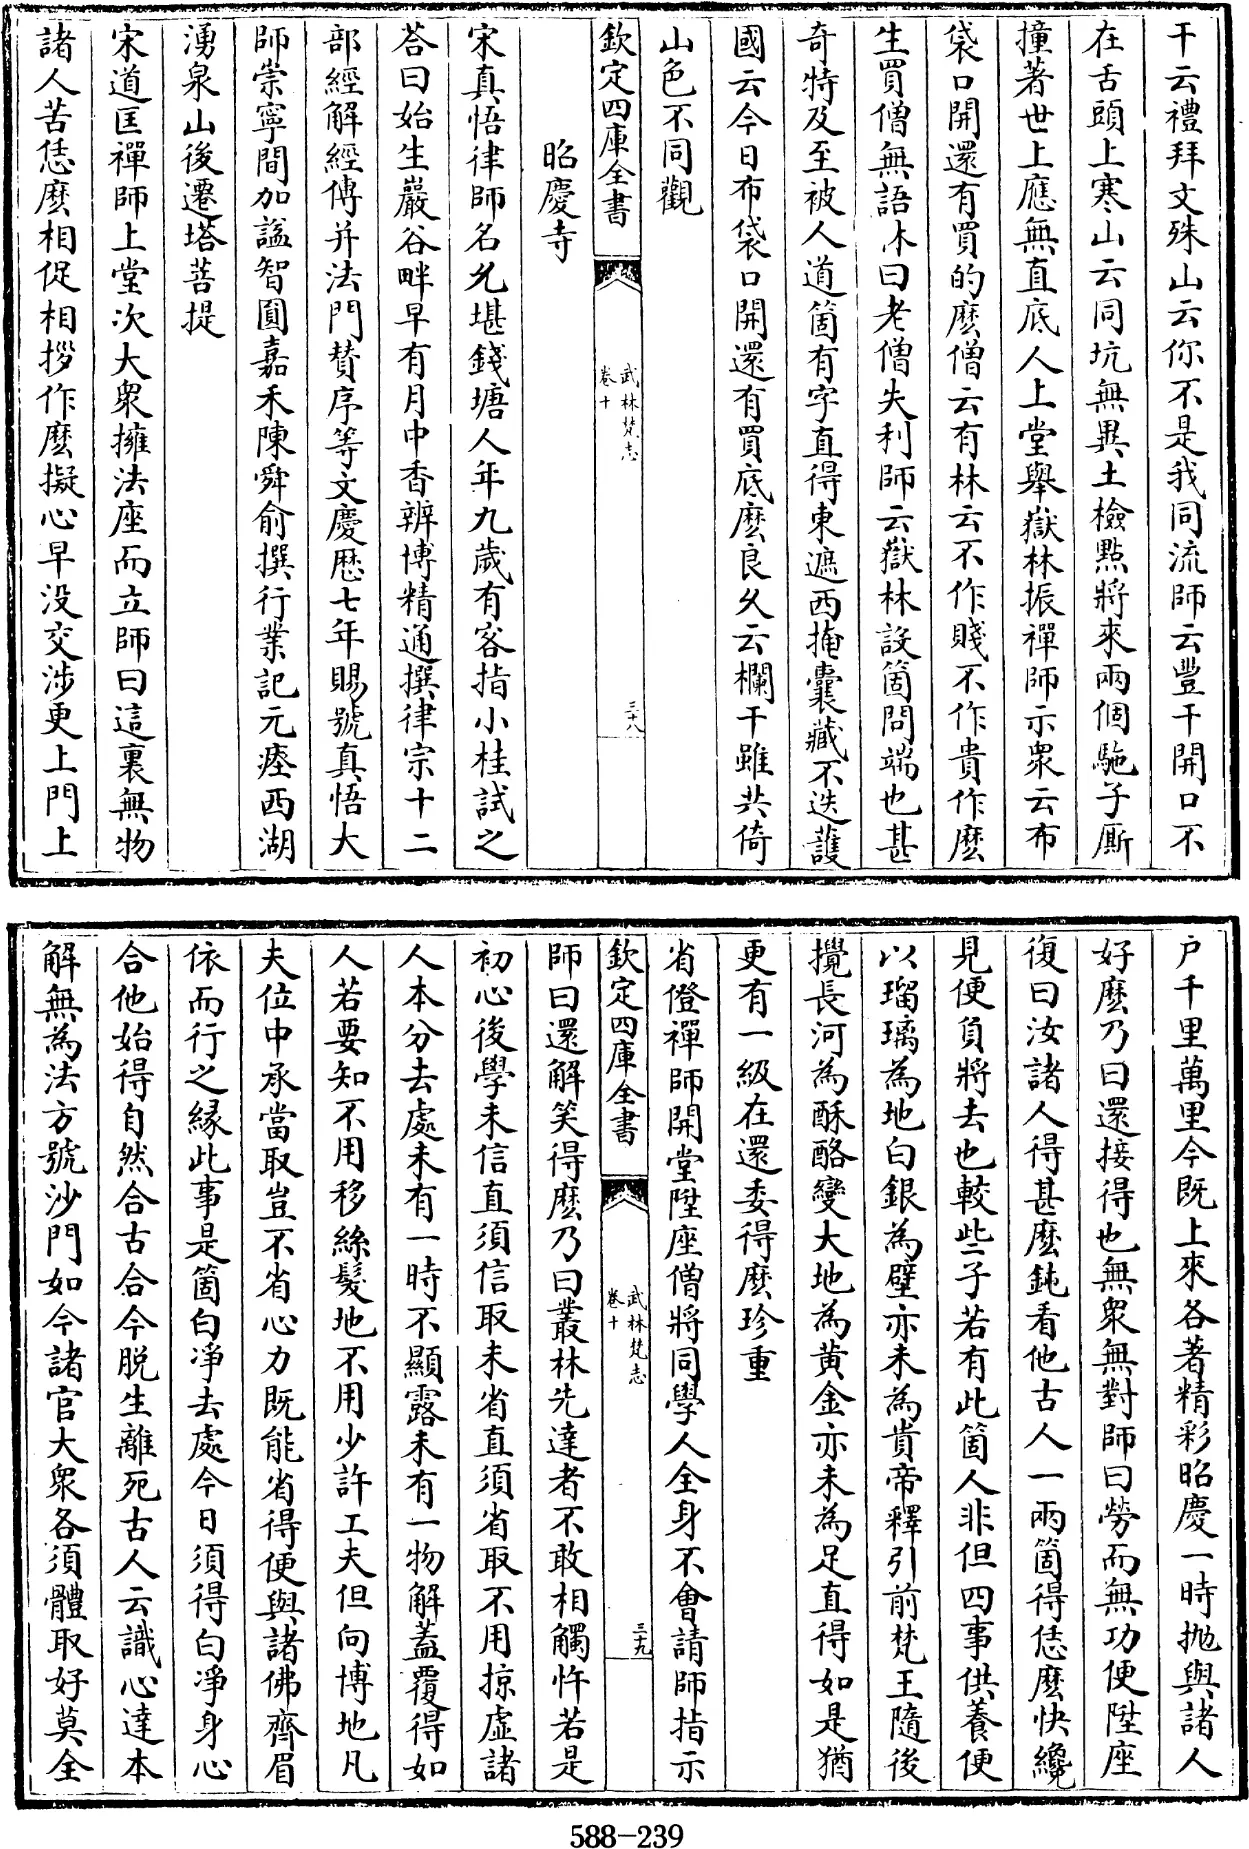 干云禮拜文殊山云你不是我同流師云豐干開口不
在舌頭上寒山云同坑無異土檢點將來兩個駞子厮
撞著世上應無直底人上堂舉嶽林振禪師示衆云布
袋口開還有買的麽僧云有林云不作賤不作貴作麽
生買僧無語林曰老僧失利師云嶽林設箇問端也甚
奇特及至被人道箇有字直得東遮西掩囊藏不迭護
國云今日布袋口開還有買底麽良乆云欄干雖共倚
山色不同觀
欽定四庫全書
武林梵志
卷十
三十八
昭慶寺
宋真悟律師名允堪錢塘人年九歲有客指小桂試之
荅曰始生巖谷畔早有月中香辨博精通撰律宗十二
部經解經傳并法門賛序等文慶厯七年賜號真悟大
師崇寧間加諡智圓嘉禾陳舜俞撰行業記元瘞西湖
湧泉山後遷塔菩提
宋道匡禪師上堂次大衆擁法座而立師曰這裏無物
諸人苦恁麽相促相拶作麽擬心早没交涉更上門上
户千里萬里今既上來各著精彩昭慶一時抛與諸人
好麽乃曰還接得也無衆無對師曰勞而無功便陞座
復曰汝諸人得甚麽鈍看他古人一兩箇得恁麽快纔
見便負將去也較些子若有此箇人非但四事供養便
以瑠璃為地白銀為壁亦未為貴帝釋引前梵王隨後
攪長河為酥酪變大地為黄金亦未為足直得如是猶
更有一級在還委得麽珍重
省僜禪師開堂陞座僧將同學人全身不會請師指示
欽定四庫全書
武林梵志
卷十
三十九
師曰還解笑得麽乃曰叢林先達者不敢相觸忤若是
初心後學未信直須信取未省直須省取不用掠虚諸
人本分去處未有一時不顯露未有一物解蓋覆得如
人若要知不用移絲髪地不用少許工夫但向博地凡
夫位中承當取豈不省心力既能省得便與諸佛齊眉
依而行之縁此事是箇白净去處今日須得白淨身心
合他始得自然合古合今脱生離死古人云識心達本
解無為法方號沙門如今諸官大衆各須體取好莫全
588-239